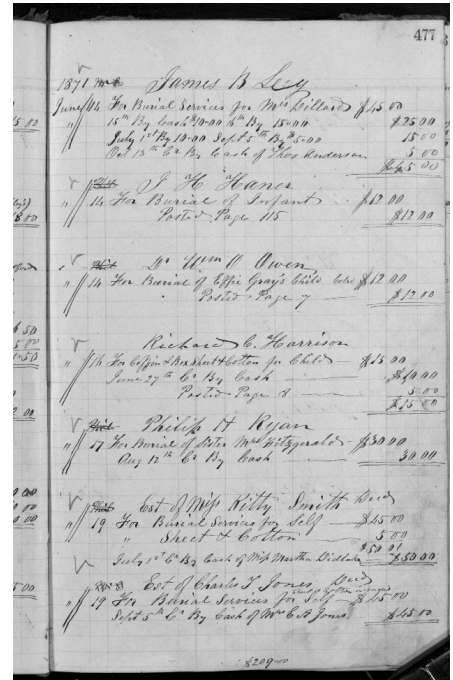 477
1871 James B Ley
June 14 For Burial Services for Mrs Dillard $45 00
15th By Cash $10.00 16th By 15.00 $25 00
" July 1st By 10.00 Sept 5th By $5.00 15 00
Oct 13th Cr By Cash of Thos Anderson 5 00
$45 00
J H Haner
" 14 For Burial of Infant $12 00
Posted Page 115 $12 00
Dr Wm O Owen
" 14 For Burial of Effie Gray's Child $12 00
Posted Page 7 $12 00
Richard C. Harrison
" 16 For Coffin & Box Sheet & Cotton for Child $15 00
June 27th Cr By Cash $10.00
Posted Page 5 00
$15 00
Philip H Ryan
" 17 For Burial of Sister Mrs Fitzgerald $30 00
Aug 12th Cr By Cash 30.00
Est of Miss Kitty Smith Decd
" 19 For Burial Services for Self $45 00
" Sheet & Cotton 5 00
$50 00
July 1st Cr By Cash of Miss Martha $50 00
Est of Charles T. Jones Decd
" 19 For Burial Services for Self $45 00
Sept 5th Cr By Cash of Mrs E A Jones $45.00
$209.00